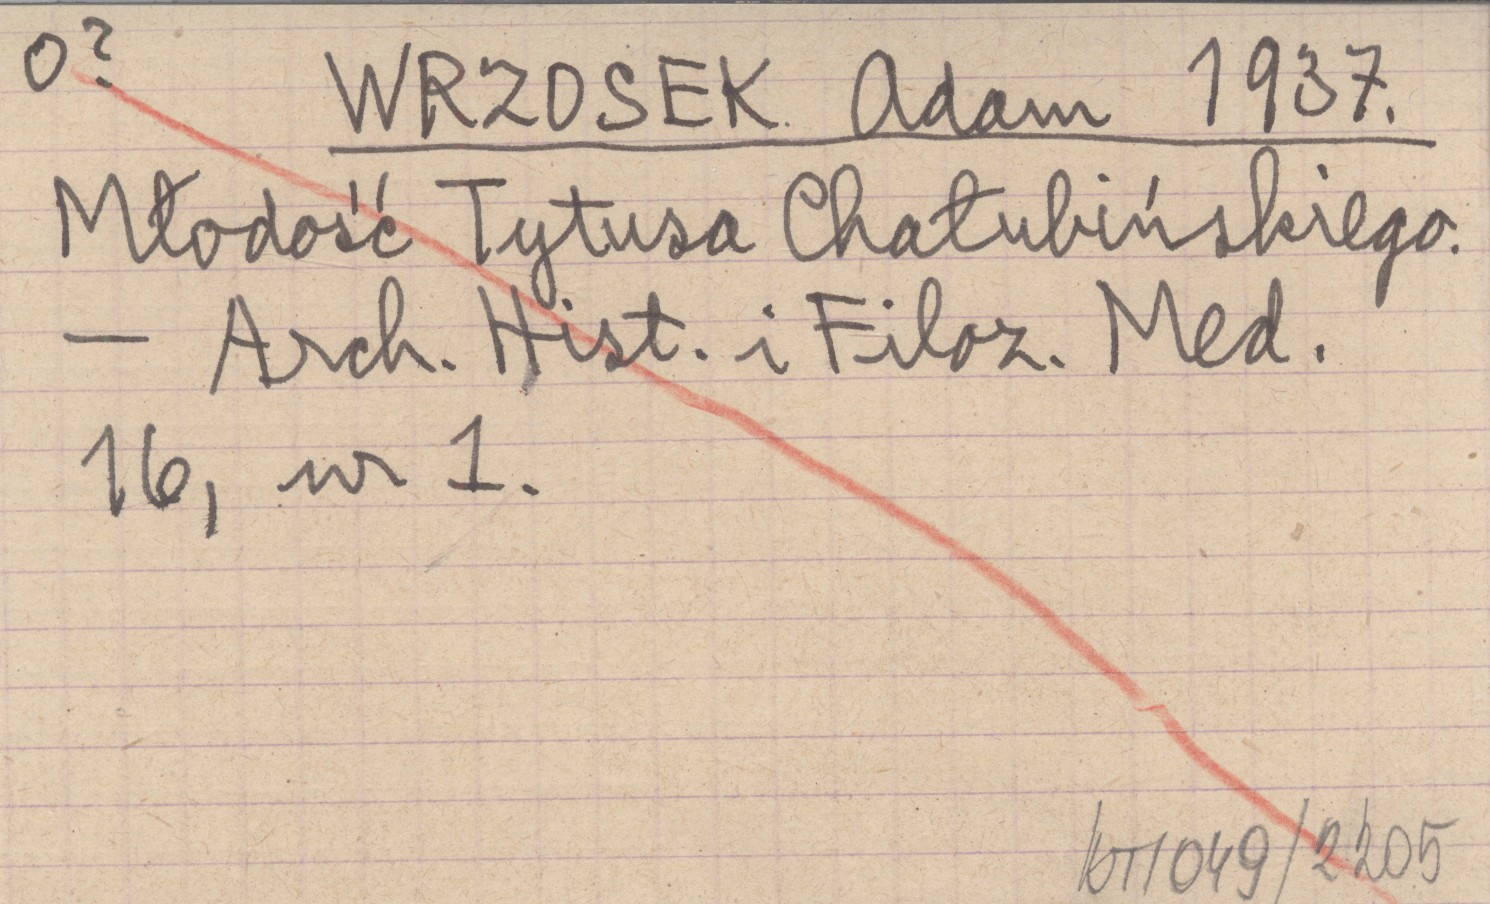 O?
WRZOSEK Adam 1937.
Młodość Tytusa Chałubińskiego.
— Arch. Hist. i Filoz. Med.
16, nr 1.
049/2205